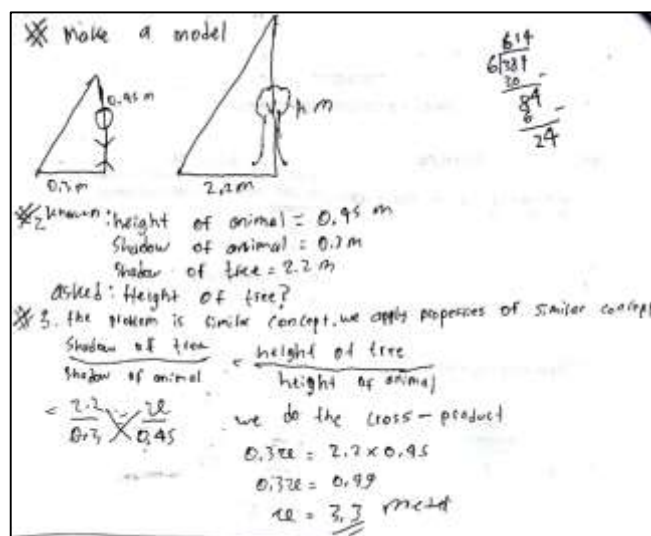 Make a model
0.45 m
m
0.3 m
2.2 m
614
6 384
30 -
84
6 -
24
2 known : height of animal = 0.45 m
Shadow of animal = 0.3 m
Shadow of tree = 2.2 m
asked : Height of tree?
3. the problem is similar concept, we apply properties of similar concept
Shadow of tree / Shadow of animal = height of tree / height of animal
= 2.2 / 0.3 x / 0.45 we do the cross-product
0.3x = 2.2 x 0.45
0.3x = 0.99
x = 3.3